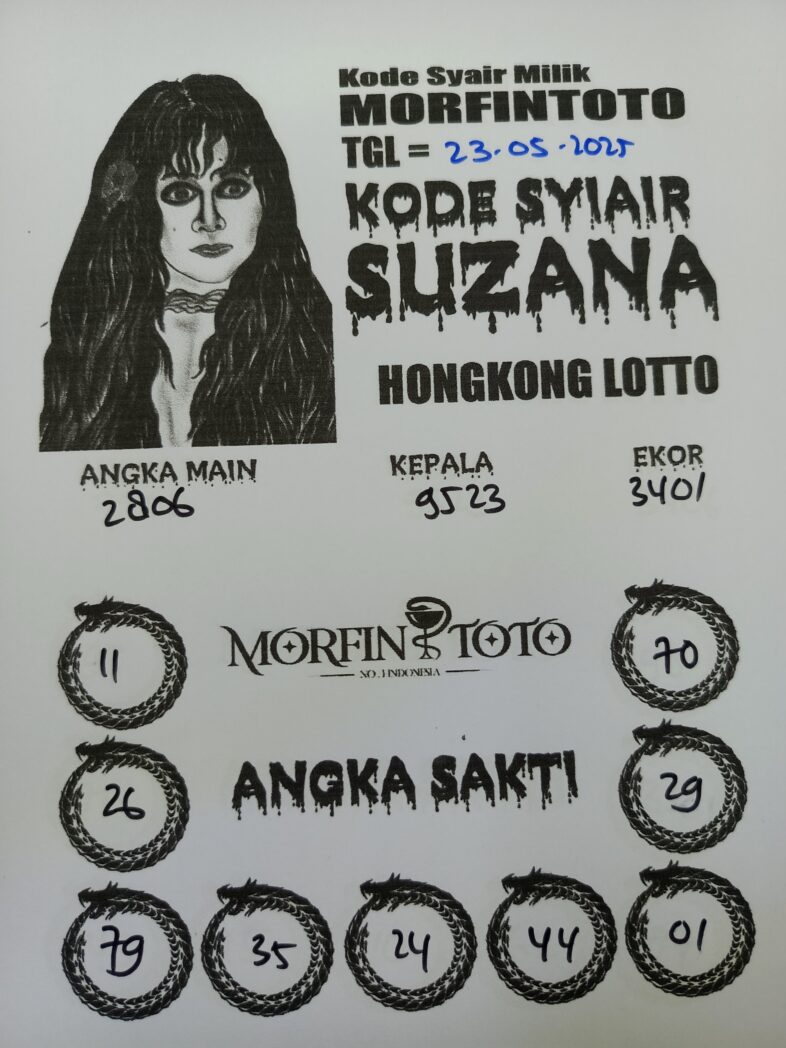 Kode Syair Milik
MORFINTOTO
TGL = 23.05.2025
KODE SYIAIR
SUZANA
HONGKONG LOTTO
ANGKA MAIN KEPALA EKOR
2806 9523 3401
11 MORFIN TOTO 70
NO.1 INDONESIA
26 ANGKA SAKTI 29
79 35 24 44 01